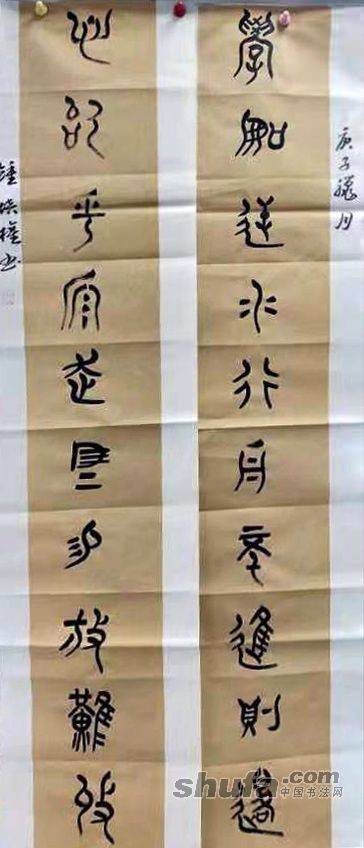 庚子穐月
學如逆水行舟不進則退
心似平原走馬易放難收
shufa.com
中国书法网